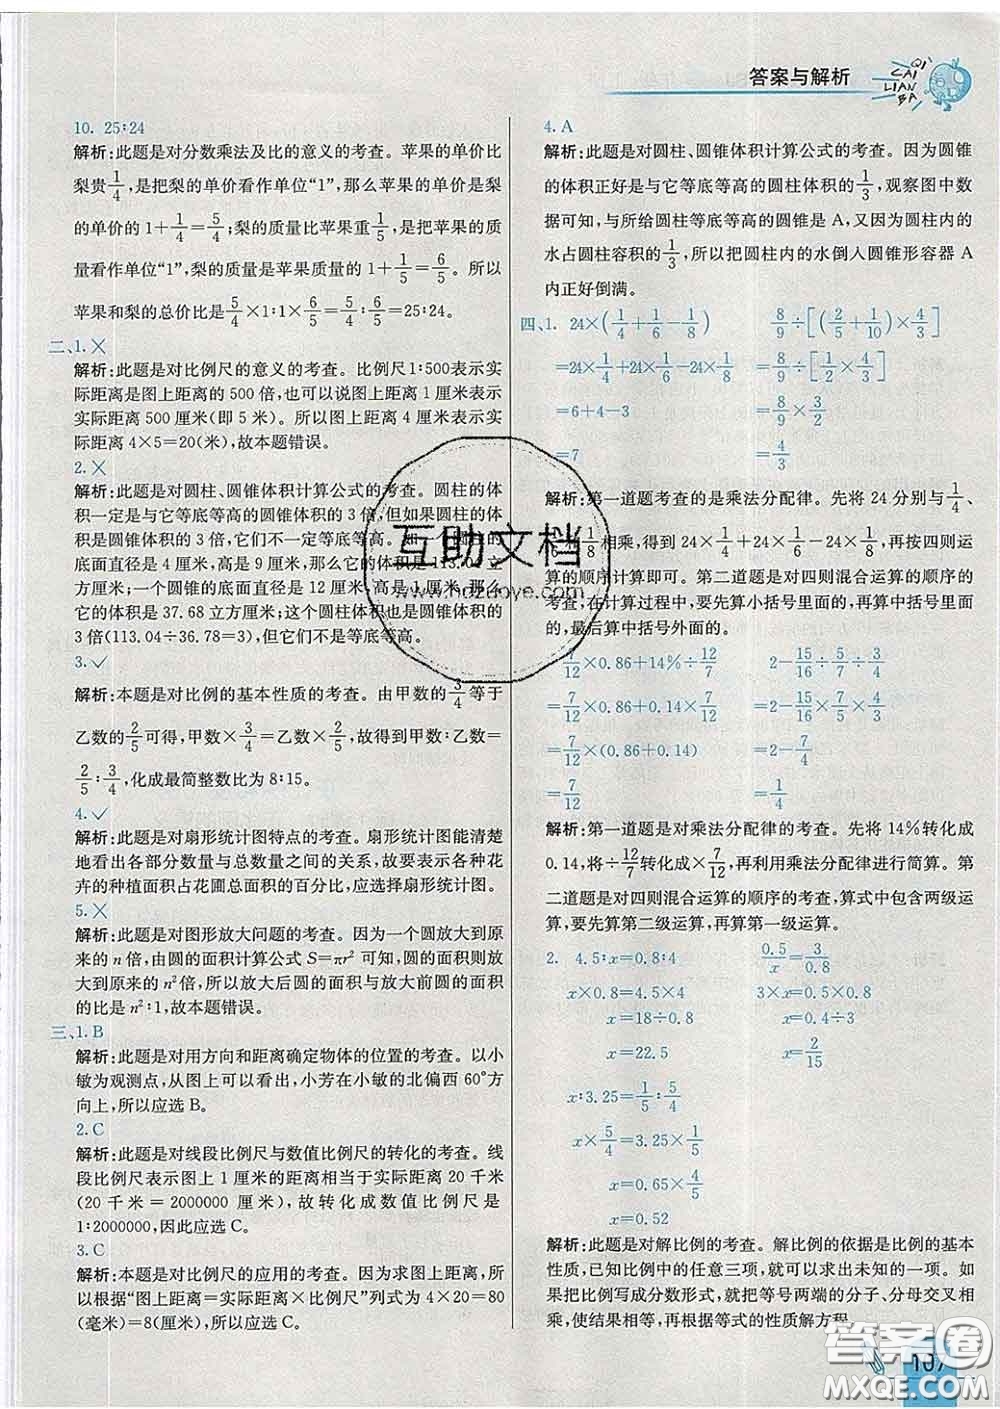 答案与解析
QI CAI LIAN BA
10. 25∶24
解析:此题是对分数乘法及比的意义的考查。苹果的单价比
梨贵1/4,是把梨的单价看作单位“1”,那么苹果的单价是梨
的单价的 1+1/4=5/4;梨的质量比苹果重1/5,是把苹果的质
量看作单位“1”,梨的质量是苹果质量的 1+1/5=6/5。所以
苹果和梨的总价比是5/4×1∶1×6/5=5/4∶6/5=25∶24。
二、1. ×
解析:此题是对比例尺的意义的考查。比例尺1∶500表示实
际距离是图上距离的 500 倍,也可以说图上距离 1 厘米表示
实际距离 500 厘米(即 5 米)。所以图上距离 4 厘米表示实
际距离 4×5=20(米),故本题错误。
2. ×
解析:此题是对圆柱、圆锥体积计算公式的考查。圆柱的体
积一定是与它等底等高的圆锥体积的 3 倍,但如果圆柱的体
积是圆锥体积的 3 倍,它们不一定等底等高。如一个圆柱的
底面直径是 4 厘米,高是 9 厘米,那么它的体积是 113.04 立
方厘米;一个圆锥的底面直径是 12 厘米,高是 1 厘米,那么
它的体积是 37.68 立方厘米;这个圆柱体积也是圆锥体积的
3 倍(113.04÷36.78=3),但它们不是等底等高。
3. ✓
解析:本题是对比例的基本性质的考查。由甲数的3/4等于
乙数的2/5可得,甲数×3/4=乙数×2/5,故得到甲数∶乙数=
2/5∶3/4,化成最简整数比为 8∶15。
4. ✓
解析:此题是对扇形统计图特点的考查。扇形统计图能清楚
地看出各部分数量与总数量之间的关系,故要表示各种花
卉的种植面积占花圃总面积的百分比,应选择扇形统计图。
5. ×
解析:此题是对图形放大问题的考查。因为一个圆放大到原
来的 n 倍,由圆的面积计算公式 S=πr² 可知,圆的面积则放
大到原来的 n² 倍,所以放大后圆的面积与放大前圆的面积
的比是 n²∶1,故本题错误。
三、1. B
解析:此题是对用方向和距离确定物体的位置的考查。以小
敏为观测点,从图上可以看出,小芳在小敏的北偏西 60°方
向上,所以应选 B。
2. C
解析:此题是对线段比例尺与数值比例尺的转化的考查。线
段比例尺表示图上 1 厘米的距离相当于实际距离 20 千米
(20 千米 = 2000000 厘米),故转化成数值比例尺是
1∶2000000,因此应选 C。
3. C
解析:本题是对比例尺的应用的考查。因为求图上距离,所
以根据“图上距离=实际距离×比例尺”列式为 4×20=80
(毫米)=8(厘米),所以应选 C。
4. A
解析:此题是对圆柱、圆锥体积计算公式的考查。因为圆锥
的体积正好是与它等底等高的圆柱体积的1/3,观察图中数
据可知,与所给圆柱等底等高的圆锥是 A,又因为圆柱内的
水占圆柱容积的1/3,所以把圆柱内的水倒入圆锥形容器 A
内正好倒满。
四、1. 24×(1/4+1/6-1/8)   8/9÷[(2/5+1/10)×4/3]
=24×1/4+24×1/6-24×1/8   =8/9÷[1/2×4/3]
=6+4-3   =8/9×3/2
=7   =4/3
解析:第一道题考查的是乘法分配律。先将 24 分别与1/4、
1/6、1/8相乘,得到 24×1/4+24×1/6-24×1/8,再按四则运
算的顺序计算即可。第二道题是对四则混合运算的顺序的
考查,在计算过程中,要先算小括号里面的,再算中括号里面
的,最后算中括号外面的。
7/12×0.86+14%÷12/7   2-15/16÷5/7÷3/4
=7/12×0.86+0.14×7/12   =2-15/16×7/5×4/3
=7/12×(0.86+0.14)   =2-7/4
=7/12   =1/4
解析:第一道题是对乘法分配律的考查。先将 14%转化成
0.14,将÷12/7转化成×7/12,再利用乘法分配律进行简算。第
二道题是对四则混合运算的顺序的考查,算式中包含两级运
算,要先算第二级运算,再算第一级运算。
2. 4.5∶x=0.8∶4   0.5/x=3/0.8
x×0.8=4.5×4   3×x=0.5×0.8
x=18÷0.8   x=0.4÷3
x=22.5   x=2/15
x∶3.25=1/5∶5/4
x×5/4=3.25×1/5
x=0.65×4/5
x=0.52
解析:此题是对解比例的考查。解比例的依据是比例的基本
性质,已知比例中的任意三项,就可以求出未知的一项。如
果把比例写成分数形式,就把等号两端的分子、分母交叉相
乘,使结果相等,再根据等式的性质解方程。
107
互助文档
www.hdzuoye.com
答案圈
MXQE.COM